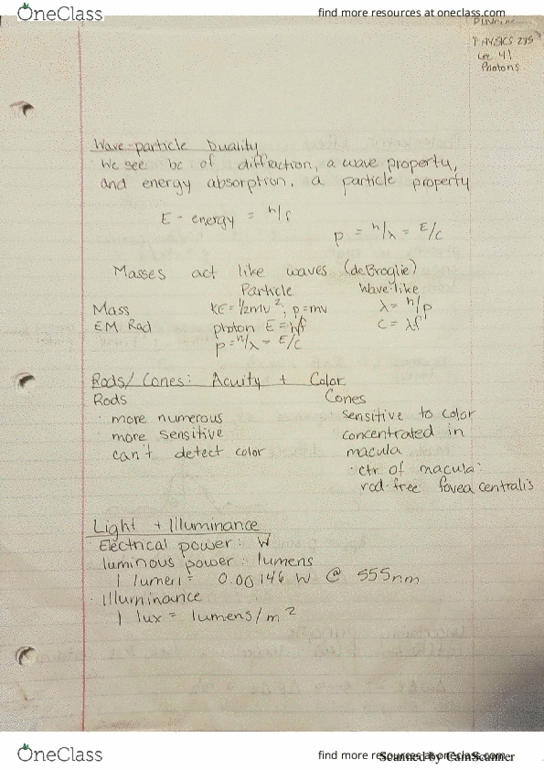 OneClass
find more resources at oneclass.com
PHYSICS 235
Lec 41
Photons
Wave-particle Duality
We see bc of diffraction, a wave property,
and energy absorption. a particle property
E - energy = h/f
p = h/λ = E/c
Masses act like waves (deBroglie)
Particle Wave-like
Mass KE = 1/2mv², p=mv λ = h/p
EM Rad photon E = hf c = λf
p = h/λ = E/c
Rods/Cones: Acuity + Color
Rods Cones
· more numerous sensitive to color
more sensitive concentrated in
can't detect color macula
· ctr of macula:
rod-free fovea centralis
Light + Illuminance
Electrical power: W
luminous power: lumens
1 lumen = 0.00146 W @ 555nm
· Illuminance
1 lux = lumens/m²
OneClass
find more resources at oneclass.com
Scanned by CamScanner